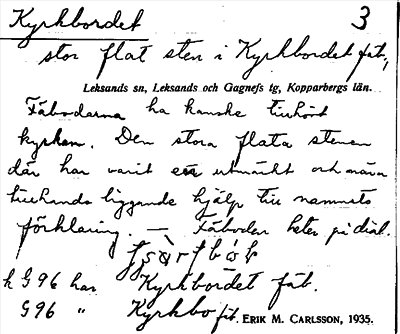 Kyrkbordet 3
stor flat sten i Kyrkbordet fäb.,
Leksands sn, Leksands och Gagnefs tg, Kopparbergs län.
Fäbodarna ha kanske tillhört
kyrkan. Den stora flata stenen
där har varit ett utmärkt och nära
tillhands liggande hjälp till namnets
förklaring. — Fäboden heter på dial.
k G96 har Kyrkbordet fäb.
G96 " Kyrkbo fäb.
ERIK M. CARLSSON, 1935.